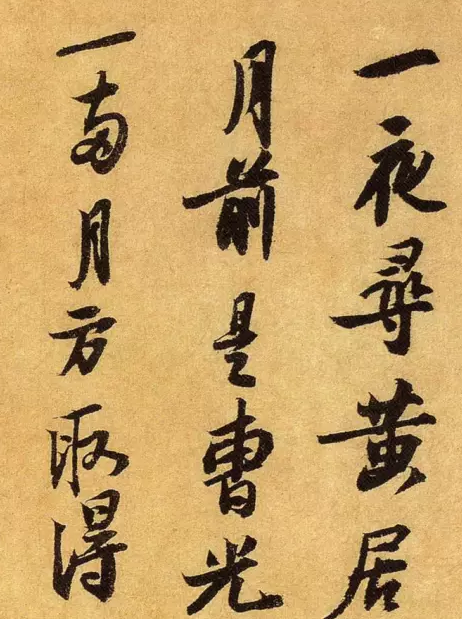 一夜尋黄居
月前是曹光
一兩月方取得